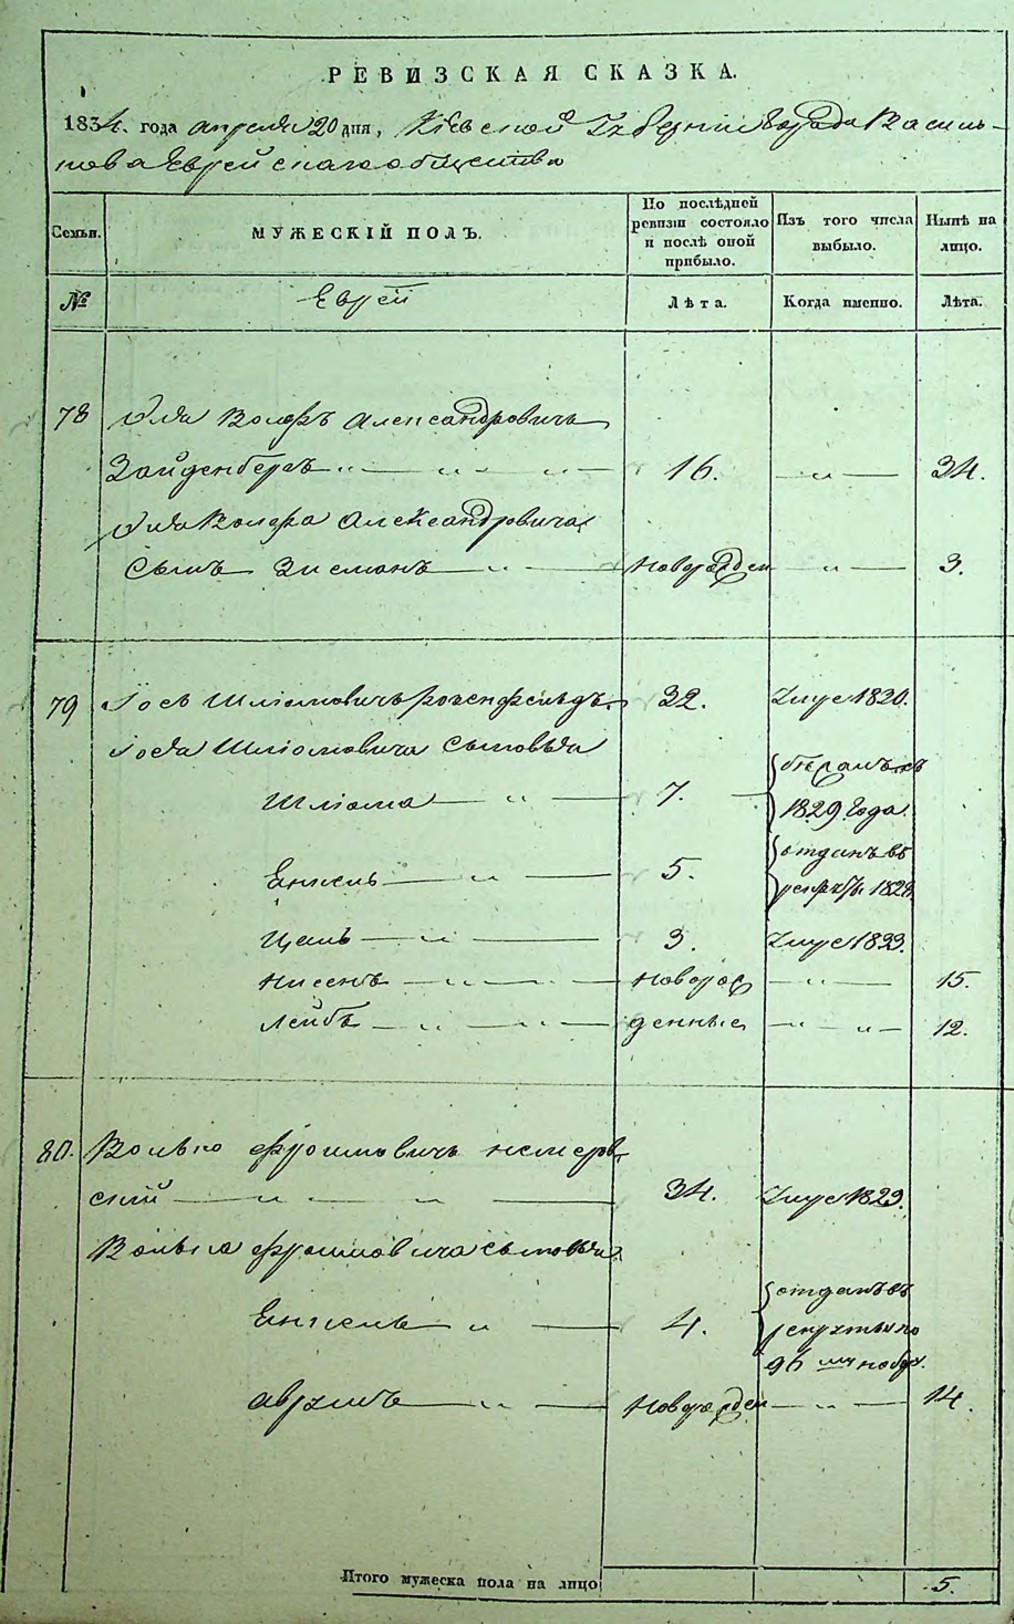 РЕВИЗСКАЯ СКАЗКА.
1834. года апреля 20 дня, Кіевской Губерніи города Василь-
кова Еврейскаго общества
Семьи.
МУЖЕСКІЙ ПОЛЪ.
По послѣдней ревизіи состояло и послѣ оной прибыло.
Изъ того числа выбыло.
Нынѣ на лицо.
№
Еврей
Лѣта.
Когда именно.
Лѣта.
78 Иля Волфъ Александровичъ
Зайденбергъ 16. 34.
Иля Волфа Александровича
Сынъ Зисманъ новорожден 3.
79 Іось Шліомовичъ Розенфельдъ. 32. Умре 1830.
Іося Шліомовича сыновья
Шліома 7. бѣгамъ съ
1829 года.
Енкель 5. отданъ въ
рекруты 182
Цаль 3. Умре 1833.
Нисенъ новорож 15.
Лейбъ денные 12.
80. Волько Фроимовичъ Немеров
ский 34. Умре 1829.
Волька Фроимовича сыновья
Енкель 4. отданъ въ
рекруты по
96 му набор.
Аврумъ новорожден 14.
Итого мужеска пола на лицо 5.